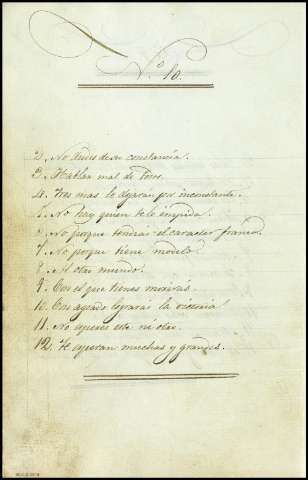 N.º 10.
2. No dices de su constancia.
3. Hablan mal de Vmd.
4. Tres mas lo dejarán por inconstante.
5. No hay quien te lo impida.
6. No porque tendrás el caracter franco.
7. No porque tiene modelo.
8. Al otro mundo.
9. Con el que tienes morirás.
10. Con agrado lograrás la victoria!
11. No esperes este ni otro.
12. Te esperan muchas y grandes.